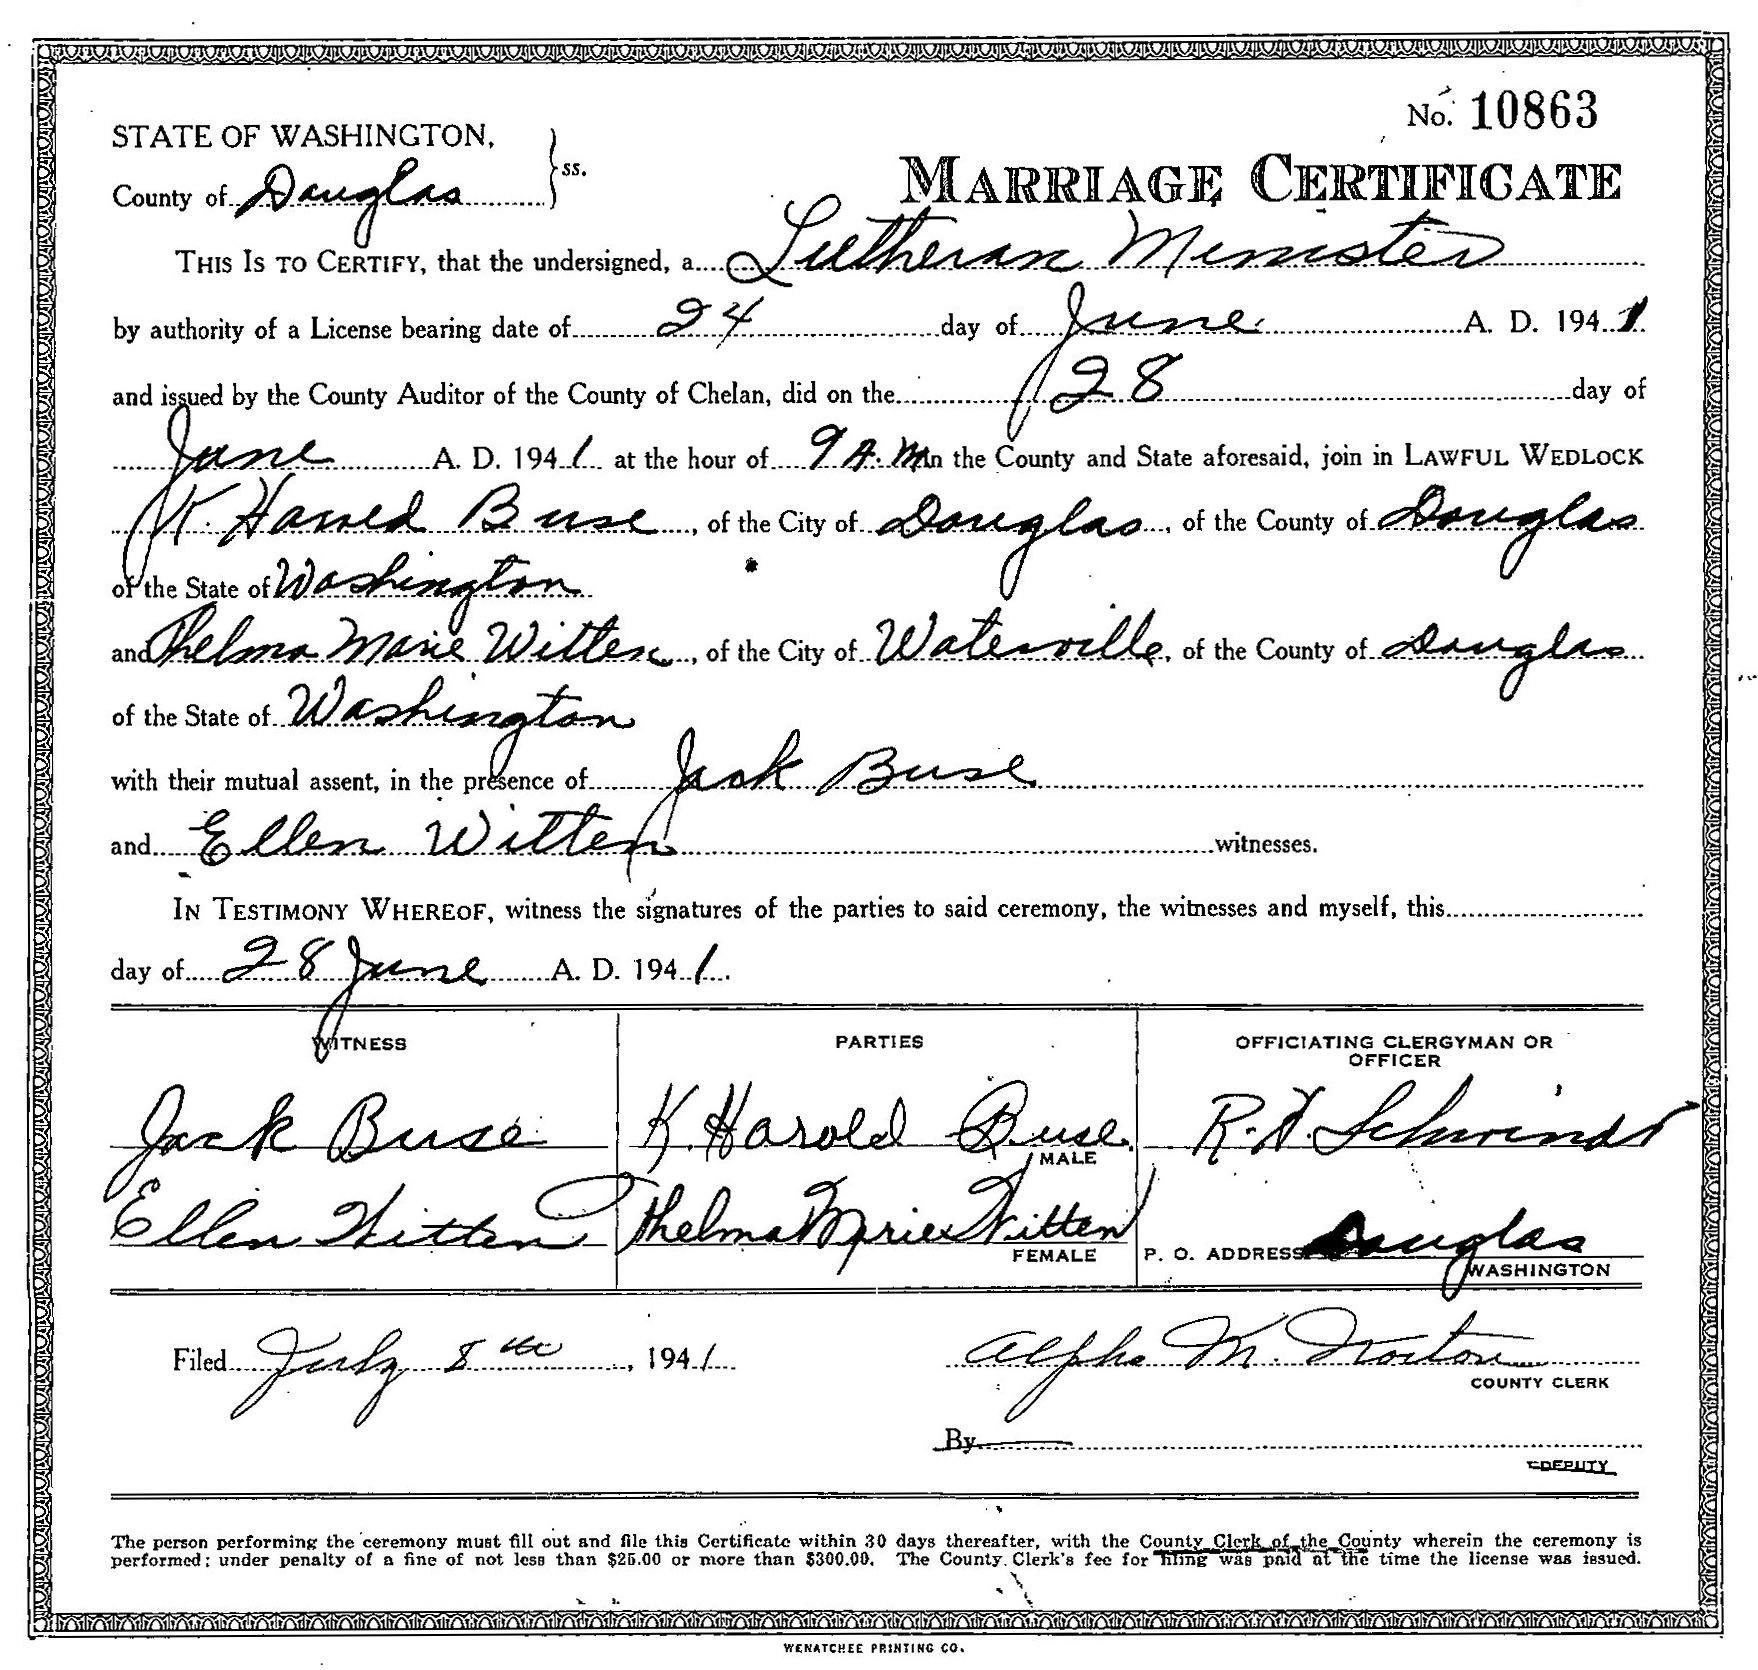 No. 10863
STATE OF WASHINGTON,
County of Douglas } ss.
MARRIAGE CERTIFICATE
THIS IS TO CERTIFY, that the undersigned, a Lutheran Minister
by authority of a License bearing date of 24 day of June A. D. 1941
and issued by the County Auditor of the County of Chelan, did on the 28 day of
June A. D. 1941 at the hour of 9 A.M. in the County and State aforesaid, join in LAWFUL WEDLOCK
K. Harold Buse, of the City of Douglas, of the County of Douglas
of the State of Washington
and Thelma Marie Witten, of the City of Waterville, of the County of Douglas
of the State of Washington
with their mutual assent, in the presence of Jack Buse
and Ellen Witten witnesses.
IN TESTIMONY WHEREOF, witness the signatures of the parties to said ceremony, the witnesses and myself, this
day of 28 June A. D. 1941.
WITNESS
Jack Buse
Ellen Witten
PARTIES
K. Harold Buse
MALE
Thelma Marie Witten
FEMALE
OFFICIATING CLERGYMAN OR
OFFICER
R. H. Schwindt
P. O. ADDRESS Douglas
WASHINGTON
Filed July 8th, 1941
Alpha M. Norton
COUNTY CLERK
By
DEPUTY
The person performing the ceremony must fill out and file this Certificate within 30 days thereafter, with the County Clerk of the County wherein the ceremony is
performed; under penalty of a fine of not less than $25.00 or more than $300.00. The County Clerk's fee for filing was paid at the time the license was issued.
WENATCHEE PRINTING CO.